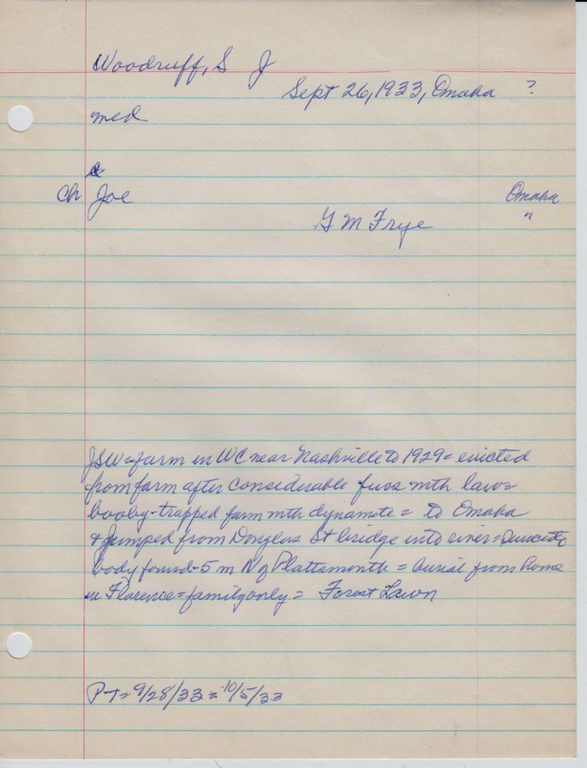 Woodruff, S J
Sept 26, 1933, Omaha ?
med
&
Ch Joe Omaha
G M Frye "
JSW = farm in WC near Nashville to 1929 = evicted
from farm after considerable fuss with law =
booby-trapped farm with dynamite = to Omaha
& jumped from Douglas St bridge into river = suicide
body found 5 m N of Plattsmouth = burial from home
in Florence = family only = Forest Lawn
PT = 9/28/33 = 10/5/33